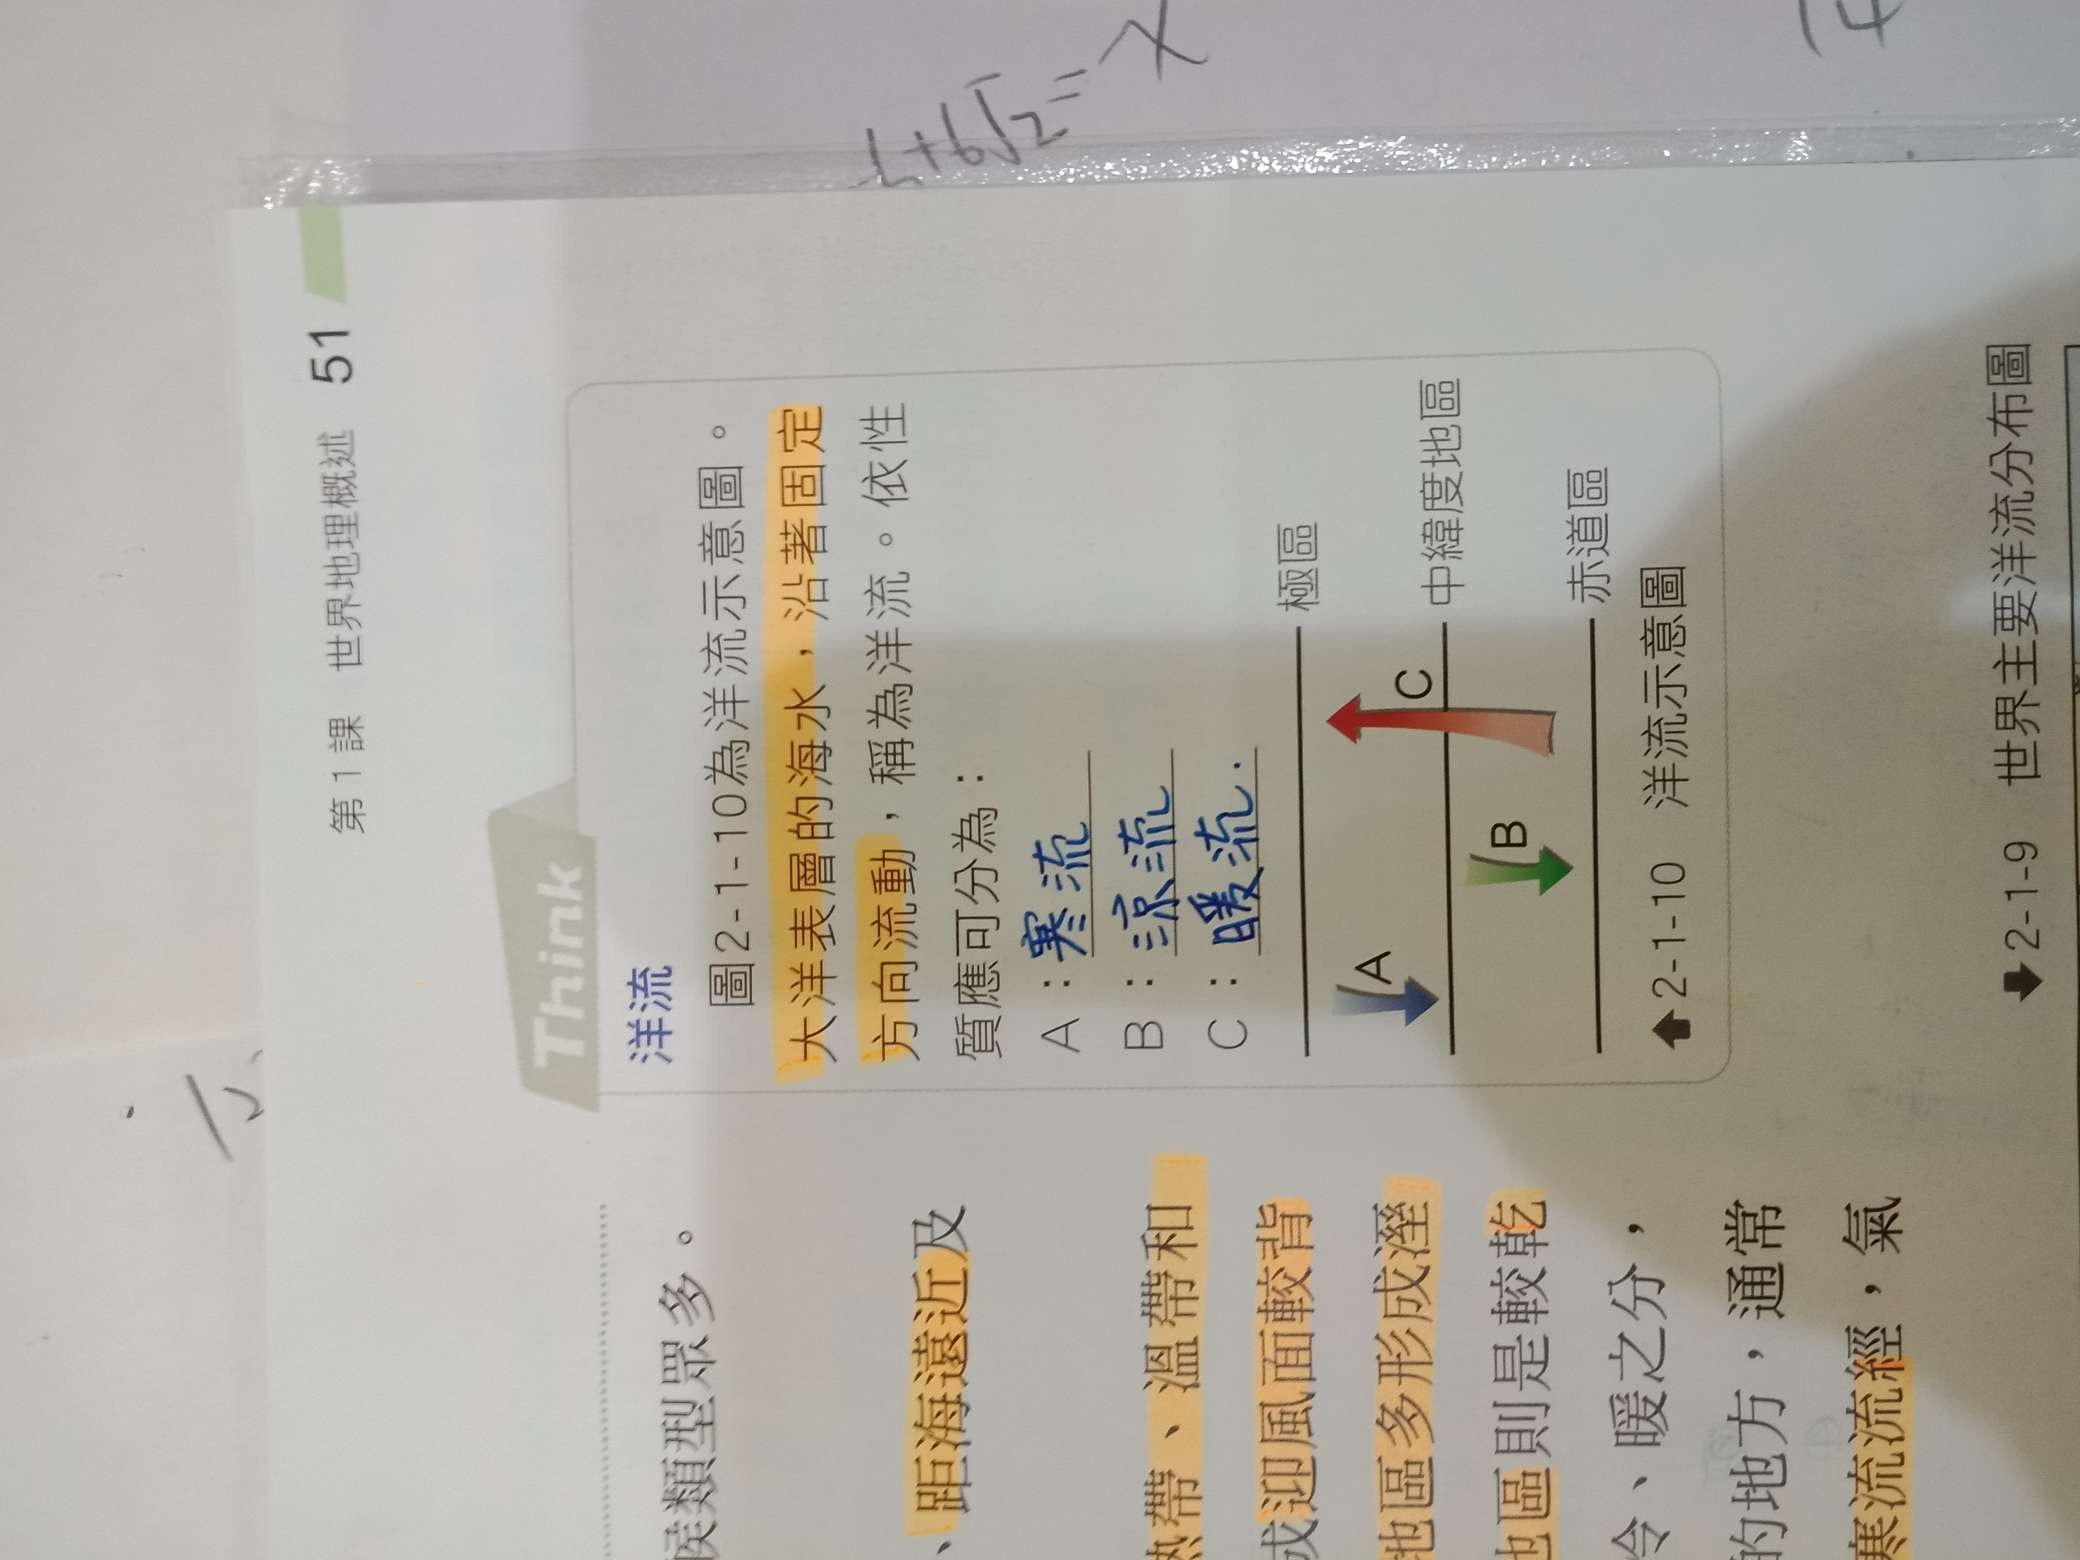 第1課 世界地理概述 51
Think
洋流
圖2-1-10為洋流示意圖。
大洋表層的海水，沿著固定
方向流動，稱為洋流。依性
質應可分為：
A：寒流
B：涼流
C：暖流.
極區
A
C
中緯度地區
B
赤道區
2-1-10 洋流示意圖
2-1-9 世界主要洋流分布圖
候類型眾多。
、距海遠近及
熱帶、溫帶和
成迎風面較背
地區多形成溼
地區則是較乾
冷、暖之分，
的地方，通常
寒流流經，氣
+6√2=x
14